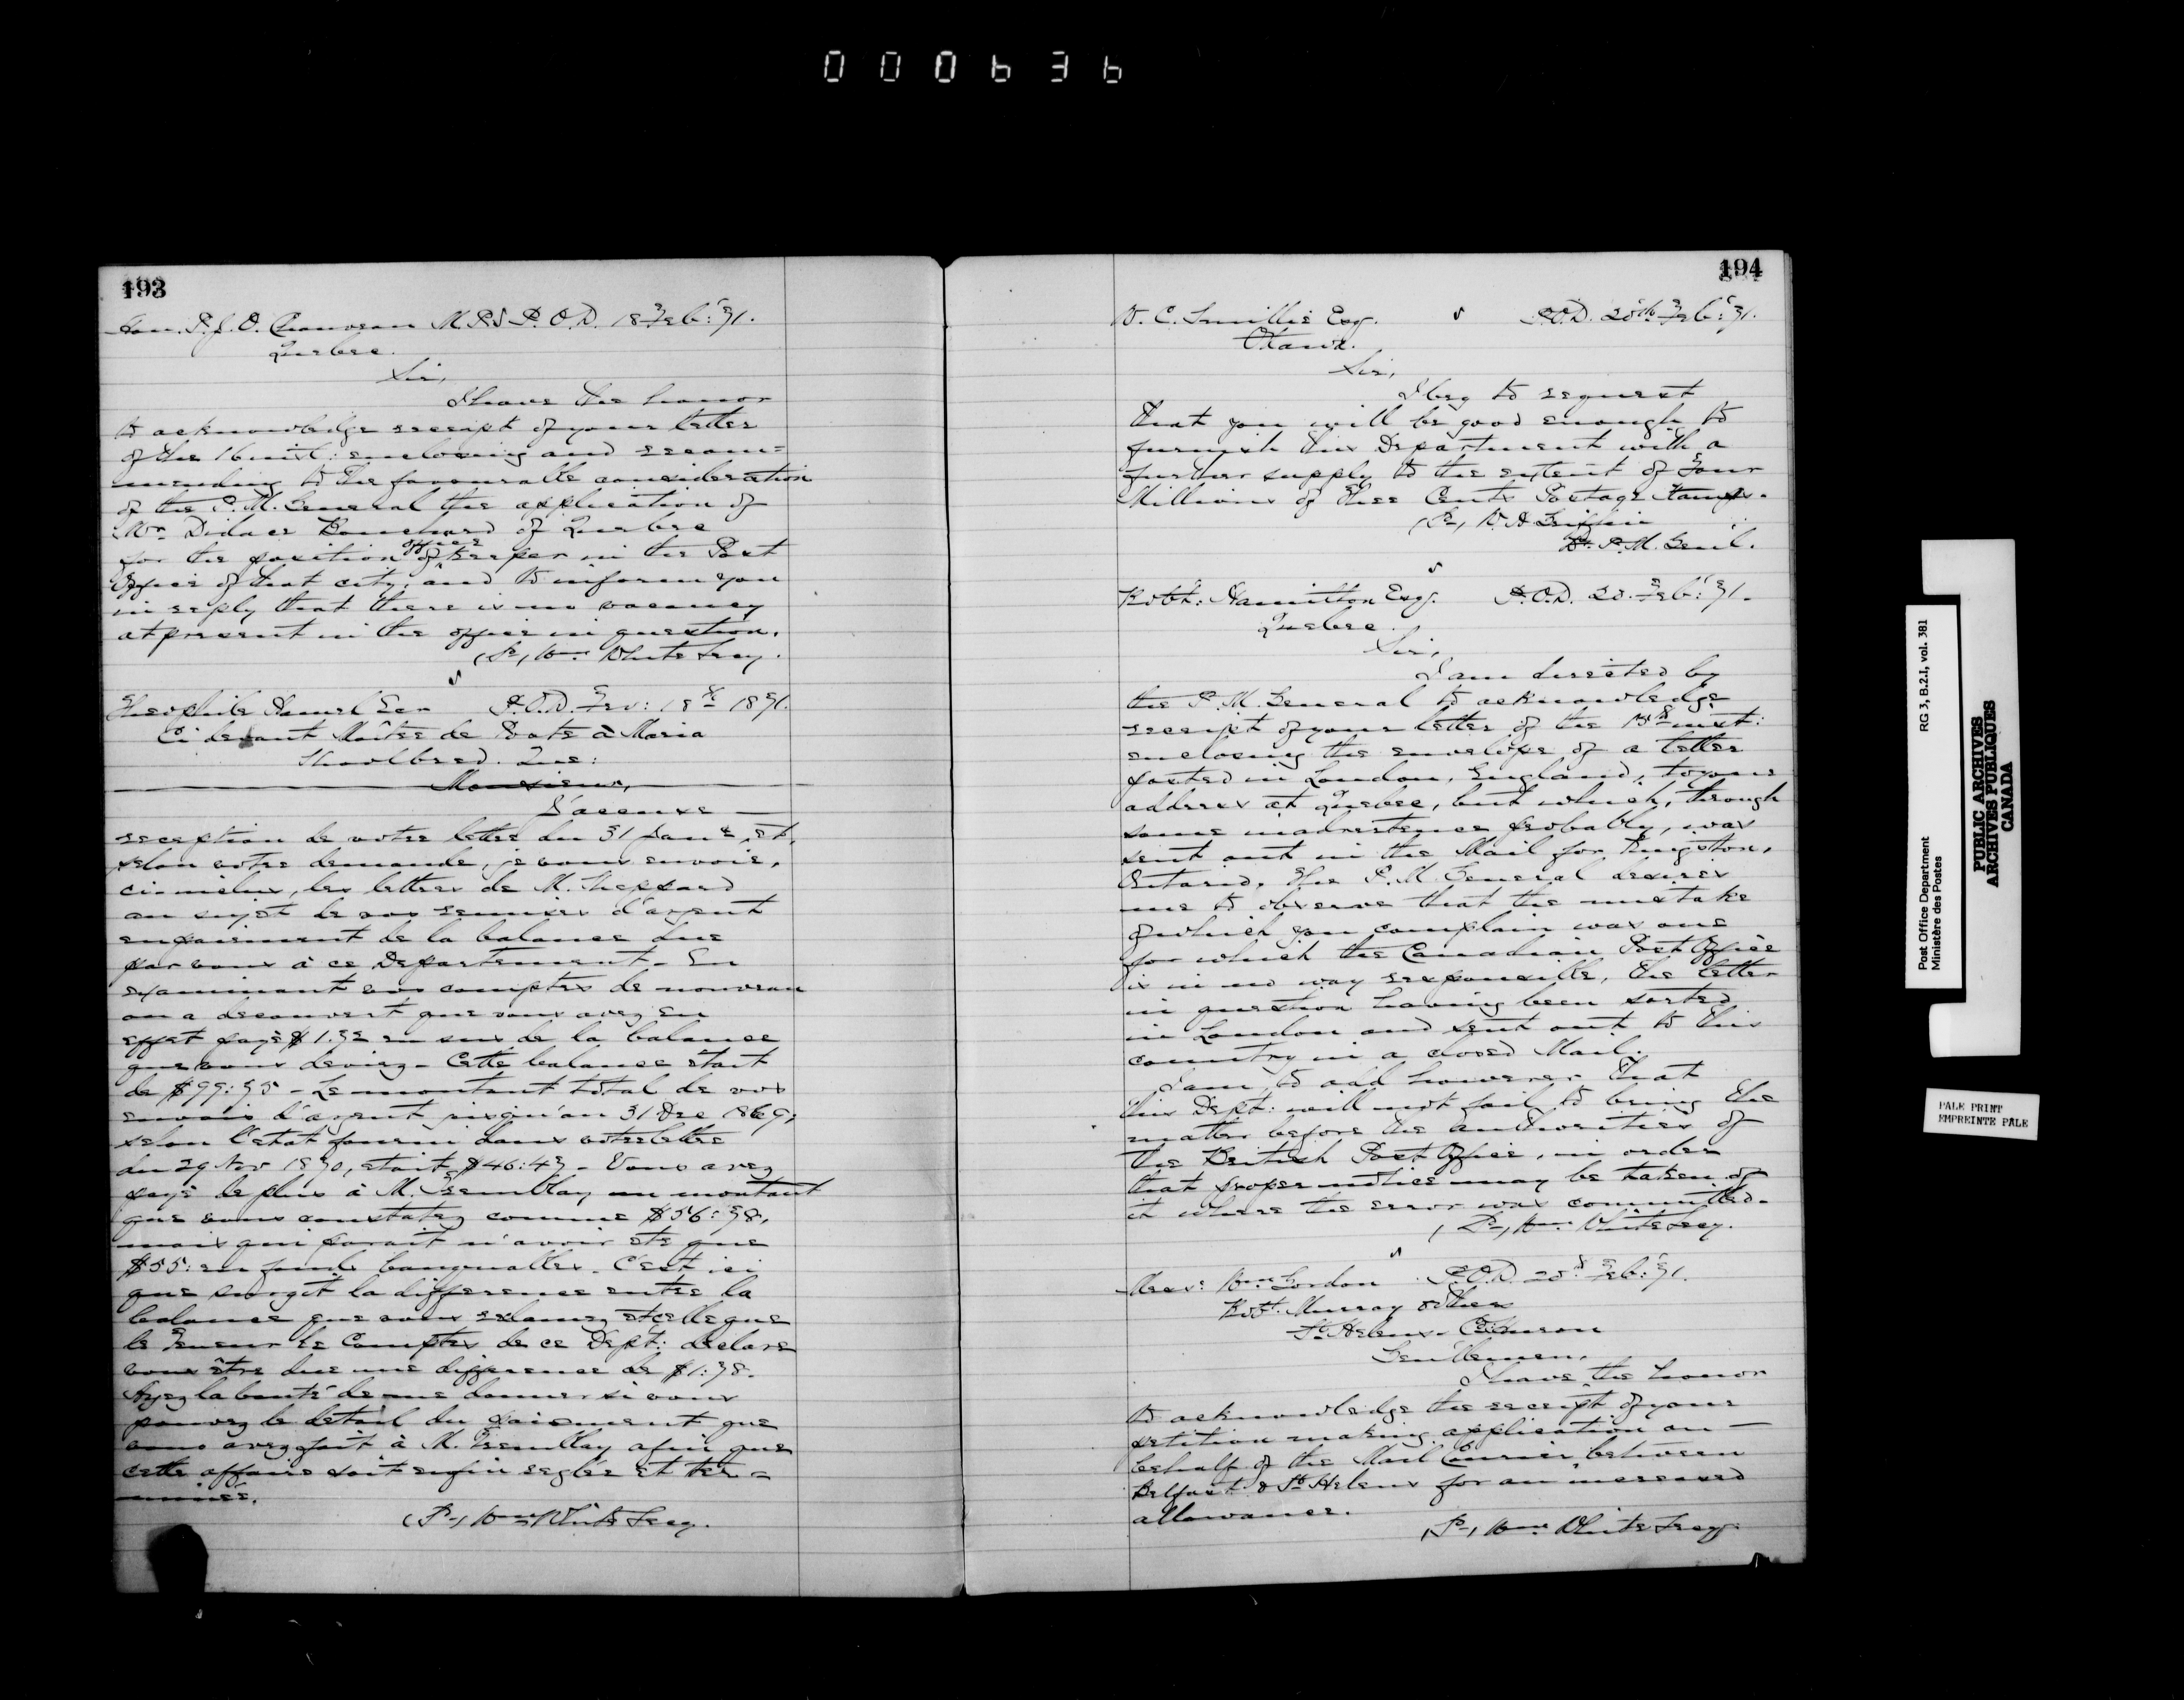 000636
193
Hon. P. J. O. Chauveau M.P. P.O.D. 18 Feb: '71.
Quebec.
Sir,
I have the honor
to acknowledge receipt of your letter
of the 16 inst: enclosing and recom=
mending to the favourable consideration
of the P. M. General the application of
Mr Didace Bouchard of Quebec
for the position of office keeper in the Post
Office of that city, and to inform you
in reply that there is no vacancy
at present in the office in question.
(Sd) Wm White Secy.
Theophile Hamel P.O.D. Fev: 18 1871.
Ci devant Maître de Poste à Maria
Shoolbred. Que:
Monsieur,
J'accuse
reception de votre lettre du 31 Janr, et,
selon votre demande, je vous envoie,
ci-inclus, les lettres de M. Sheppard
au sujet de vos remises d'argent
en paiement de la balance due
par vous à ce Departement - En
examinant vos comptes de nouveau
on a decouvert que vous avez en
effet payé $1.72 en sus de la balance
que vous deviez - Cette balance était
de $99:75 - Le montant total de vos
envois d'argent jusqu'au 31 Dec 1869,
selon l'etat fourni dans votre lettre
du 29 Nov 1870, était $46:47 - Vous avez
payé de plus à M. Tremblay un montant
que vous constatez comme $56:78,
mais qui parait n'avoir ete que
$55: en funds banquables. C'est ici
que surgit la difference entre la
balance que vous reclamez et celle que
le Teneur de Comptes de ce Dept: declare
vous être due une difference de $1:78.
Ayez la bonté de me donner si vous
pouvez le detail du paiement que
vous avez fait à M. Tremblay afin que
cette affaire soit enfin reglée et ter=
minée.
(Sd) Wm White Secy.
194
W. C. Smillie Esq. P.O.D. 20th Feb: '71.
Ottawa.
Sir,
I beg to request
that you will be good enough to
furnish this Department with a
further supply to the extent of Four
Millions of Three Cents Postage Stamps.
(Sd) W H Griffin
Dy. P. M. Genl.
Robt: Hamilton Esq. P.O.D. 20 Feb: '71.
Quebec.
Sir,
I am directed by
the P. M. General to acknowledge
receipt of your letter of the 15th inst:
enclosing the envelope of a letter
posted in London, England, to your
address at Quebec, but which, through
some inadvertence probably, was
sent out in the Mail for Kingston,
Ontario. The P. M. General desires
me to observe that the mistake
of which you complain was one
for which the Canadian Post Office
is in no way responsible, the letter
in question having been sorted
in London and sent out to this
country in a closed Mail.
I am to add however that
this Dept: will not fail to bring the
matter before the authorities of
the British Post Office, in order
that proper notice may be taken of
it where the error was committed.
(Sd) Wm White Secy.
Messrs: Wm Gordon P.O.D. 20 Feb: '71.
Robt. Murray & others
St Helens - Co: Huron
Gentlemen,
I have the honor
to acknowledge the receipt of your
petition making application on
behalf of the Mail Courier between
Belfast & St Helens for an increased
allowance.
(Sd) Wm White Secy.
Post Office Department RG 3, B.2.I, vol. 381
Ministère des Postes
PUBLIC ARCHIVES
ARCHIVES PUBLIQUES
CANADA
PALE PRINT
EMPREINTE PALE